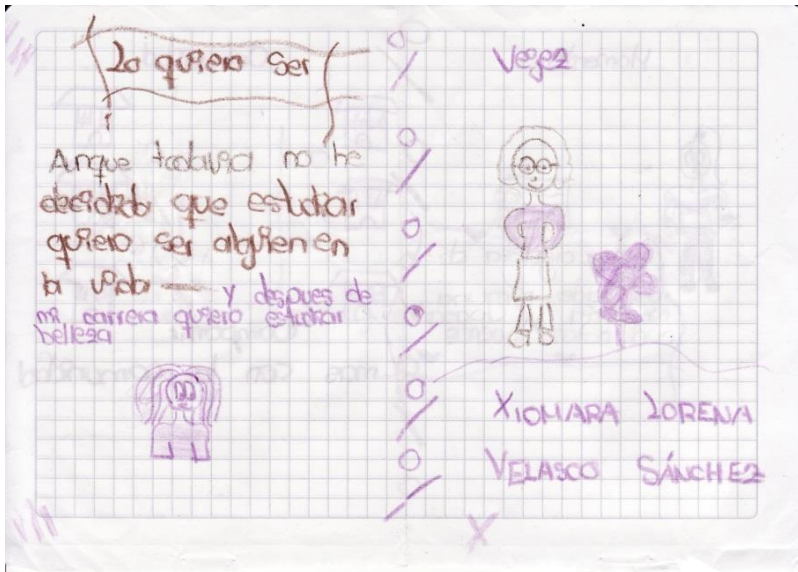 Lo quiero ser
Aunque todavia no he
decidido que estudiar
quiero ser alguien en
la vida — y despues de
mi carrera quiero estudiar
belleza
Vejez
XIOMARA LORENA
VELASCO SÁNCHEZ